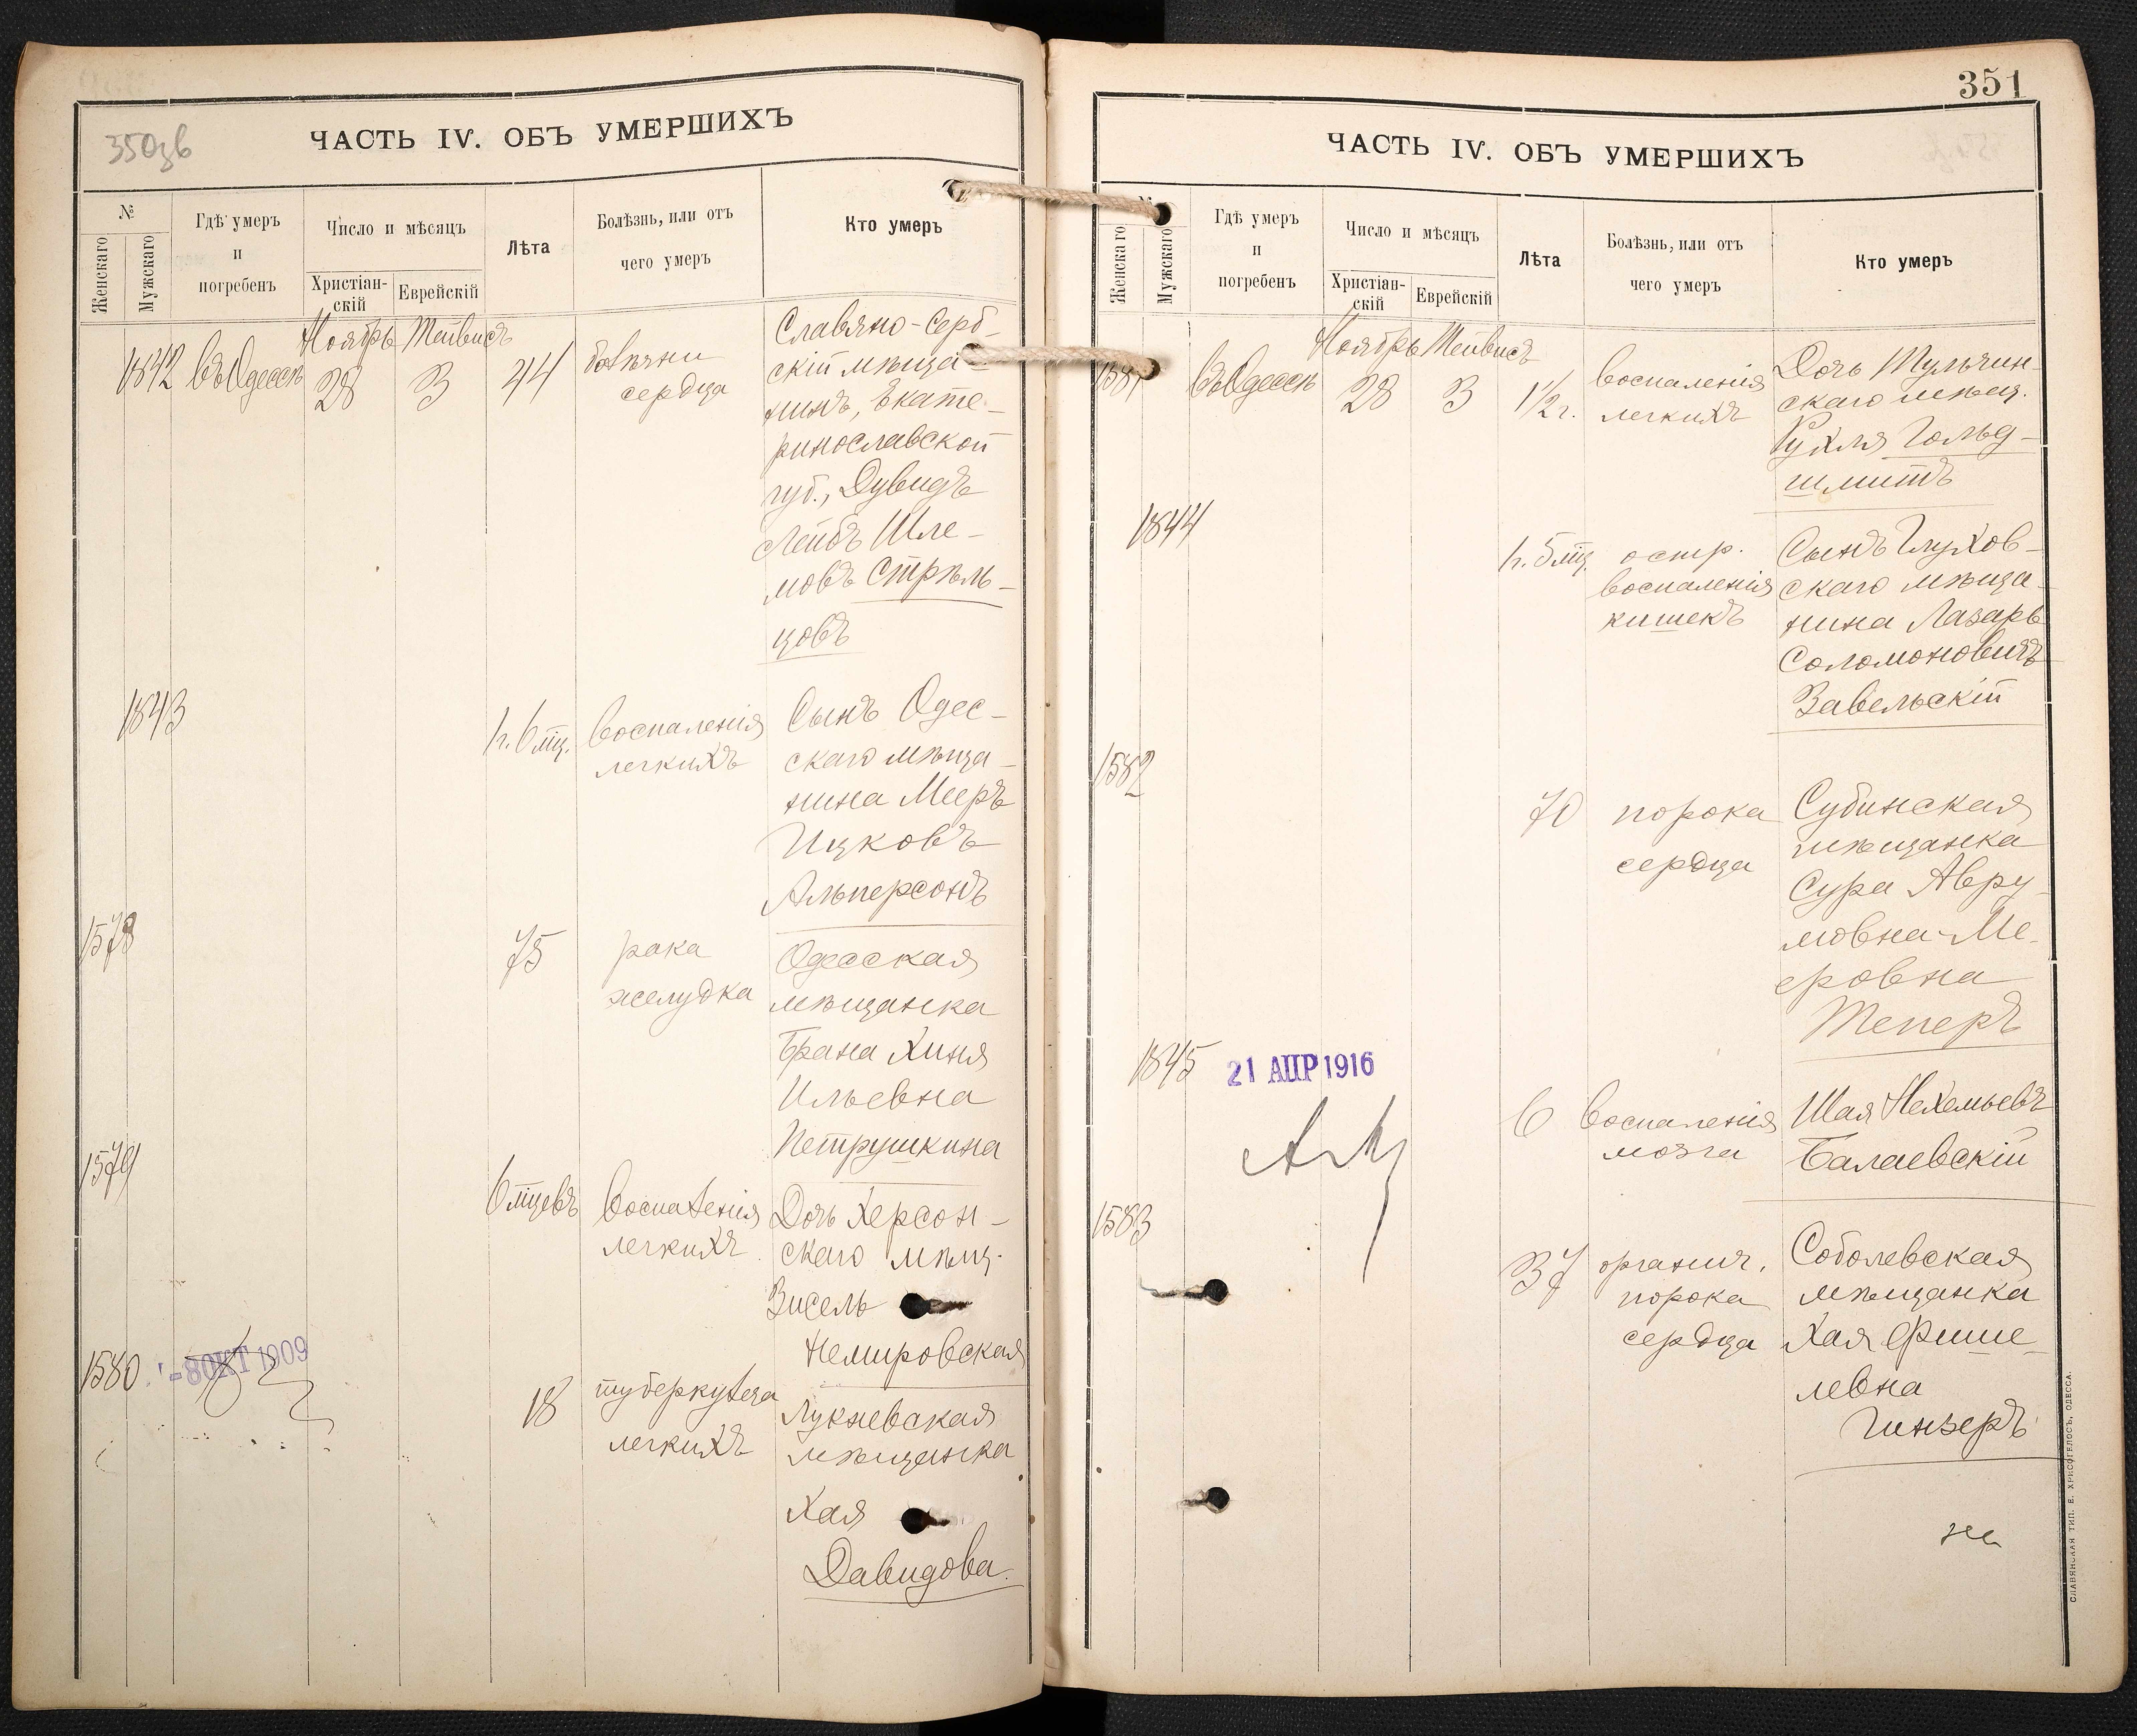 350зв
ЧАСТЬ IV. ОБЪ УМЕРШИХЪ
№
Женскаго
Мужскаго
Гдѣ умеръ
и
погребенъ
Число и мѣсяцъ
Христіан-
скій
Еврейскій
Лѣта
Болѣзнь, или отъ
чего умеръ
Кто умеръ
Ноябрь Тейвисъ
1842 въ Одессѣ 28 3 44
болѣзни
сердца
Славяно-Серб-
скій мѣща-
нинъ, Екате-
ринославской
губ., Дувидъ
Лейбъ Шле-
мовъ Стрѣль-
цовъ
1843
1 г. 6 мц.
воспаленія
легкихъ
Сынъ Одес-
скаго мѣща-
нина Мееръ
Ицковъ
Альперсонъ
1578
75
рака
желудка
Одесская
мѣщанка
Брана Хиня
Ильевна
Петрушкина
1579
6 мцевъ
воспаленія
легкихъ
Дочь Херсон-
скаго мѣщ.
Зисель
Немировская
1580
-8 ОКТ 1909
18
туберкулеза
легкихъ
Лукневская
мѣщанка
Хая
Давидова.
351
ЧАСТЬ IV. ОБЪ УМЕРШИХЪ
Женскаго
Мужскаго
Гдѣ умеръ
и
погребенъ
Число и мѣсяцъ
Христіан-
скій
Еврейскій
Лѣта
Болѣзнь, или отъ
чего умеръ
Кто умеръ
Ноябрь Тейвисъ
1581 въ Одессѣ 28 3 1 1/2 г.
воспаленія
легкихъ
Дочь Тульчин-
скаго мѣщ.
Рухля Гольд-
шмитъ
1844
1 г. 5 мц.
остр.
воспаленія
кишекъ
Сынъ Глухов-
скаго мѣща-
нина Лазарь
Соломоновичъ
Завельскій
1582
70
порока
сердца
Субинская
мѣщанка
Сура Авру-
мовна-Ме-
еровна
Теперъ
1845
21 АПР 1916
6
воспаленія
мозга
Шая Нехемьевъ
Балаевскій
1583
37
органич.
порока
сердца
Соболевская
мѣщанка
Хая Фише-
левна
Гинзеръ
на
СЛАВЯНСКАЯ ТИП. Е. ХРИСОГЕЛОСЪ, ОДЕССА.